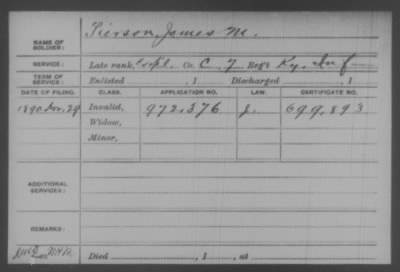 NAME OF SOLDIER: Pierson, James M.
SERVICE: Late rank, Corpl. Co. C, 7 Reg't Ky. Inf
TERM OF SERVICE: Enlisted , 1 Discharged , 1
DATE OF FILING. CLASS. APPLICATION NO. LAW. CERTIFICATE NO.
1890 Nov. 29 Invalid, 972,376 J. 699,893
Widow,
Minor,
ADDITIONAL SERVICES:
REMARKS:
Died , 1 , at